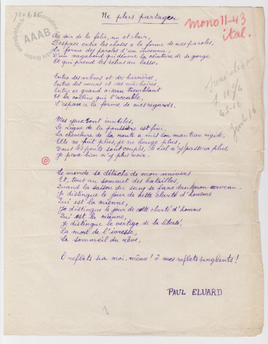 Ne plus partager
mono 11-43
ital.
AAAB
Au soir de la folie, nu et clair,
L'espace entre les choses a la forme de mes paroles,
La forme des paroles d'un inconnu,
D'un vagabond qui dénoue la ceinture de sa gorge
Et qui prend les échos au lasso.
Entre des arbres et des barrières,
Entre des murs et des mâchoires,
Entre ce grand oiseau tremblant
Et la colline qui l'accable,
L'espace a la forme de mes regards.
Mes yeux sont inutiles,
Le règne de la poussière est fini,
La chevelure de la route a mis son manteau rigide,
Elle ne fuit plus, je ne bouge plus,
Tous les ponts sont coupés, le ciel n'y passera plus
Je peux bien n'y plus voir.
Le monde se détache de mon univers
Et, tout au sommet des batailles,
Quand la saison du sang se fane dans mon cerveau,
Je distingue le jour de cette clarté d'homme
Qui est la mienne,
Je distingue le jour de cette clarté d'homme
Qui est la mienne,
Je distingue le vertige de la liberté,
La mort de l'ivresse,
Le sommeil du rêve,
Ô reflets sur moi-même! ô mes reflets sanglants!
PAUL ELUARD